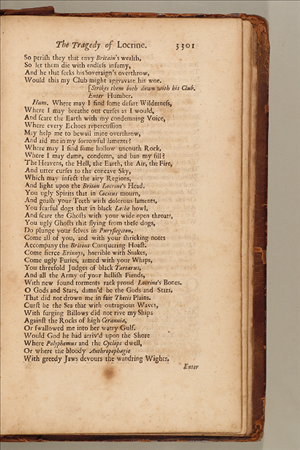 The Tragedy of Locrine. 3301
So perish they that envy Britain's wealth,
So let them die with endless infamy,
And he that seeks his Soveraign's overthrow,
Would this my Club might aggravate his woe.
[Strikes them both down with his Club.
Enter Humber.
Hum. Where may I find some desart Wilderness,
Where I may breathe out curses as I would,
And scare the Earth with my condemning Voice,
Where every Echoes repercussion
May help me to bewail mine overthrow,
And aid me in my sorrowful laments?
Where may I find some hollow uncouth Rock,
Where I may damn, condemn, and ban my fill?
The Heavens, the Hell, the Earth, the Air, the Fire,
And utter curses to the concave Sky,
Which may infect the airy Regions,
And light upon the Britain Locrine's Head.
You ugly Spirits that in Cocitus mourn,
And gnash your Teeth with dolorous laments,
You fearful dogs that in black Lethe howl,
And scare the Ghosts with your wide open throats,
You ugly Ghosts that flying from these dogs,
Do plunge your selves in Puryflegeton,
Come all of you, and with your shrieking notes
Accompany the Britains Conquering Host.
Come fierce Erinnys, horrible with Snakes,
Come ugly Furies, armed with your Whips,
You threefold Judges of black Tartarus,
And all the Army of your hellish Fiends,
With new found torments rack proud Locrine's Bones.
O Gods and Stars, damn'd be the Gods and Stars,
That did not drown me in fair Thetis Plains.
Curst be the Sea that with outragious Waves,
With surging Billows did not rive my Ships
Against the Rocks of high Cerannia,
Or swallowed me into her watry Gulf.
Would God we had arriv'd upon the Shore
Where Polyphemus and the Cyclops dwell,
Or where the bloody Anthropophagie
With greedy Jaws devours the wandring Wights,
Enter